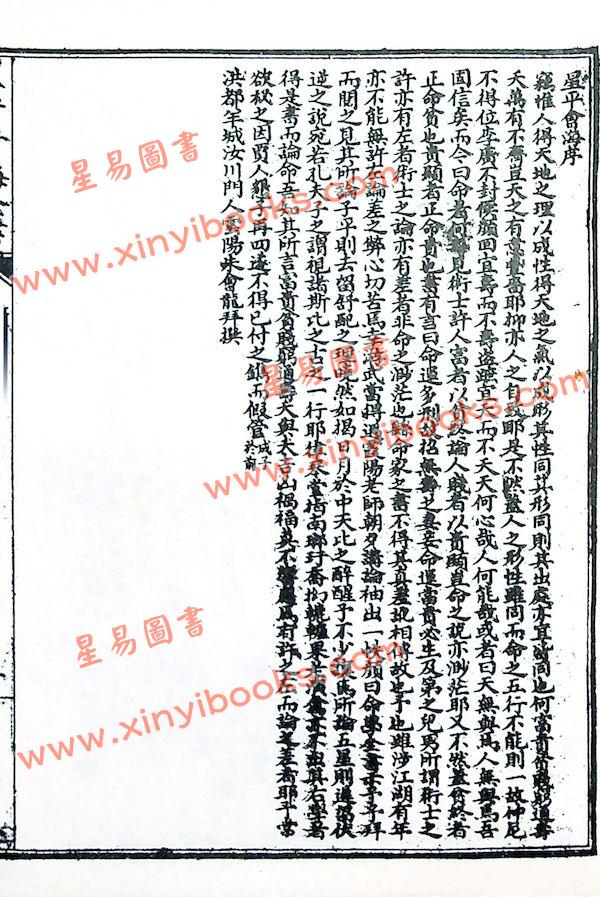 星平會海序
竊惟人得天地之理以成性得天地之氣以成形其性同其形同則其出處亦宜皆同也何富貴貧賤窮通壽
夭萬有不齊豈天之有意
耶抑亦人之有
耶是不然蓋人之形性雖同而命之五行不能則一故仲尼
不得位李廣不封侯顏回宜壽而不壽盗
宜夭而不夭天何心哉人何能哉或者曰天無與焉人無與焉吾
固信矣而今曰命者何
見術士許人富者以貧終論人賤者以貴顯豈命之說亦渺茫耶又不然蓋貧終者
正命貧也貴顯者正命貴也書有言曰命
多刑
招無壽之妻妾命
富貴必生及第之兒男所謂術士之
許亦有左者術士之論亦有差者非命之渺茫也
命家之書不得其真差訛相傳故也予也雖涉江湖有年
亦不能無許左論差之弊心切苦焉
武當得遇
陽老師朝夕講論袖出一
顏曰命學全書
予拜
而閱之見其所論子平則去留舒配之理曉然如揭日月於中天比之醉醒子不少
焉所論五星則
留伏
逆之說宛若孔夫子之謂視諸斯比之
之一行耶律
指南
得是書而論命吾知其所言富貴貧賤窮通壽夭與夫吉凶禍福莫不響應焉有許之左而論之差者耶予嘗
欲秘之因買人
予再四
不得已付之鋟而假管
成子
於前
洪都年城汝川門人雲陽
會龍拜撰
星易圖書
www.xinyibooks.com
星易圖書
www.xinyibooks.com
星易圖書
www.xinyibooks.com